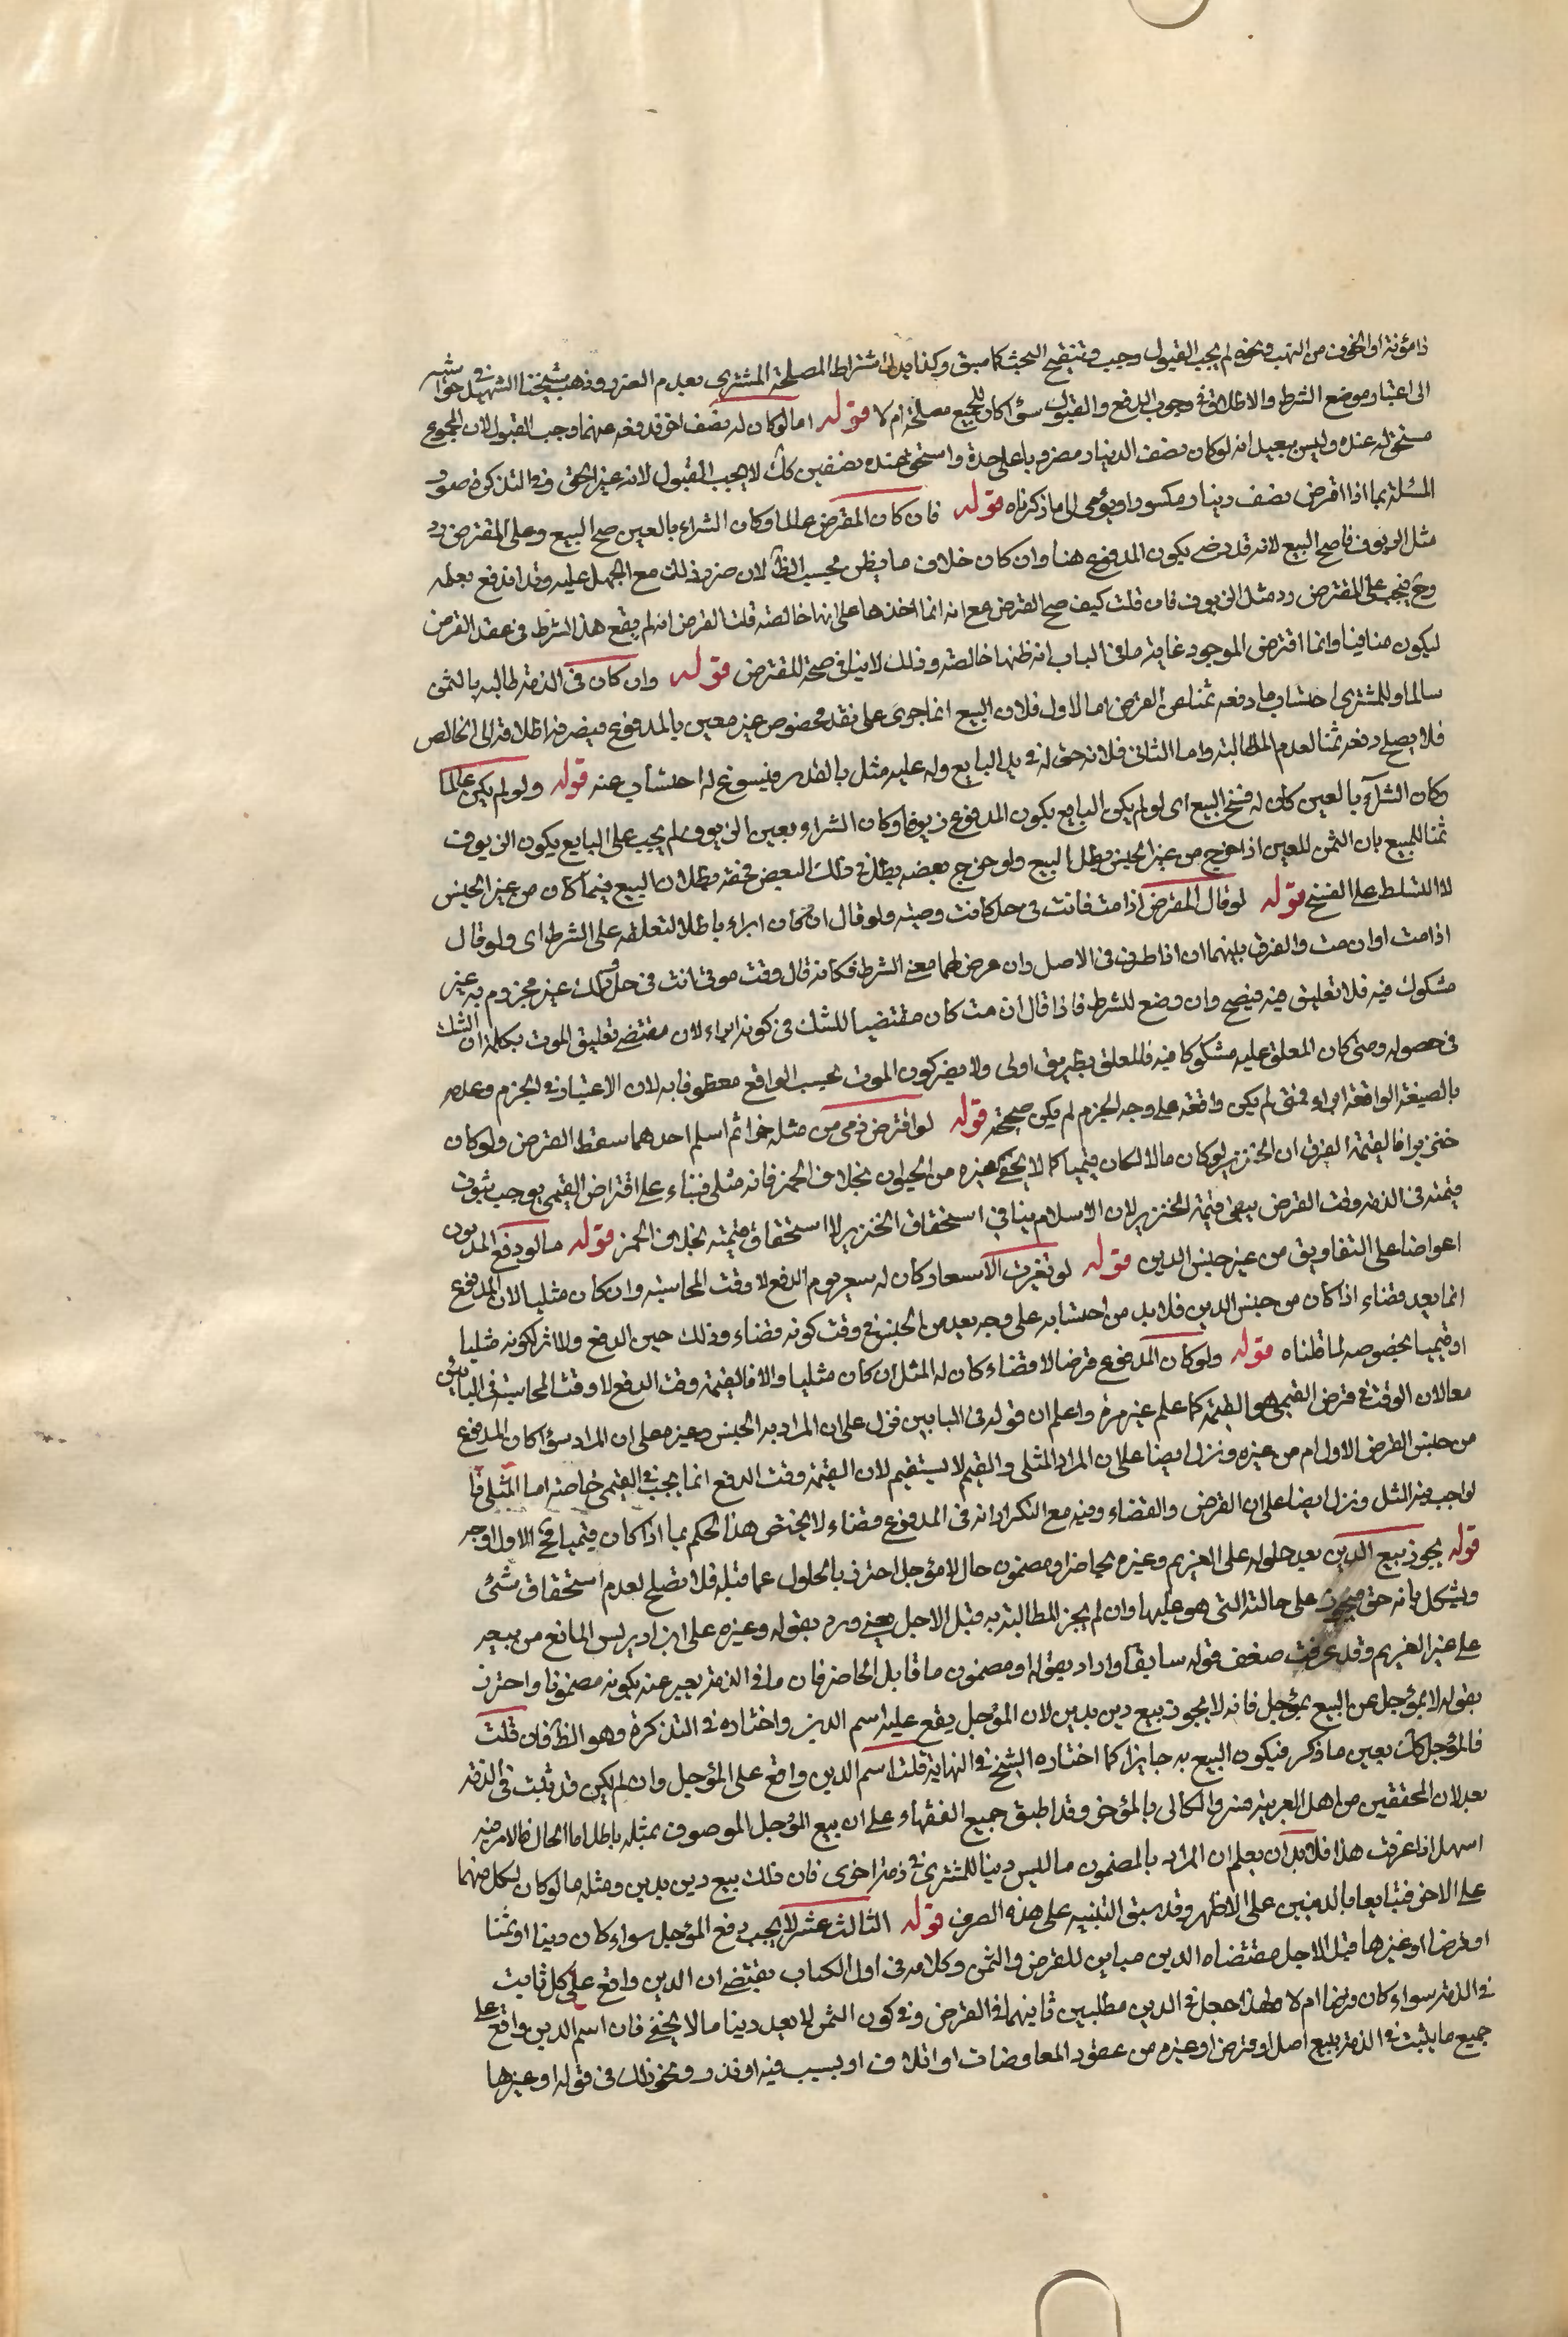 ذا مؤنة او الخوف من النهب ونحوه لم يجب القبول وجب وتنقيح البحث كما سبق وكذا بدل اشتراط المصلحة المشتري بعدم الضرر وذهب شيخنا الشهيد في حواشيه
الى اعتبار موضع الشرط والاطلاق في وجوب الدفع والقبول سواء كان للجميع مصلحة ام لا قوله اما لو كان له نصف اخر فدفعه عنهما وجب القبول لان المجموع
مستحق له عنده وليس ببعيد انه لو كان نصف الدينار مضروبا على حدة واستحق عنده نصفين كك لا يجب القبول لانه غير الحق وفي التذكرة صور
المسئلة بما اذا اقرض نصف دينار مكسور او يؤمى الى ما ذكرناه قوله فان كان المقرض عالما وكان الشراء بالعين صح البيع وعلى المقترض رد
مثل الزيوف فاصح البيع لانه قد رضي بكون المدفوع هنا وان كان خلاف ما يظن بحسب الظ لان ضرر ذلك مع الجهل عليه وقد اندفع بعلمه
وح فيجب على المقترض رد مثل الزيوف فان قلت كيف صح القرض مع انه انما اخذها على انها خالصة قلت القرض انه لم يقع هذا الشرط في عقد القرض
ليكون منافيا وانما اقترض الموجود غاية ما في الباب انه ظنها خالصة وذلك لا ينافي صحة المقترض قوله وان كان في الذمة طالبه بالثمن
سالما وللمشتري احتساب ما دفعه ثمنا عن القرض اما الاول فلان البيع انما جرى على نقد مخصوص غير معين بالمدفوع فينصرف اطلاقه الى الخالص
فلا يصلح دفعه ثمنا لعدم المطالبة واما الثاني فلانه حق له في يد البايع وله عليه مثل بالقدر فيسوغ له احتساب عنه قوله ولو لم يكن عالما
وكان الشراء بالعين كان له فسخ البيع اى لو لم يكن البايع بكون المدفوع زيوفا وكان الشراء بعين الزيوف لم يجب على البايع بكون الزيوف
ثمنا للمبيع بان الثمن المعين اذا خرج من غير الجنس بطل البيع ولو خرج بعضه بطل في ذلك البعض فحقه بطلان البيع فيما كان من غير الجنس
لا التسلط على الفسخ قوله لو قال المقرض اذا مت فانت في حل كانت وصية ولو قال ان كان ابراء باطلا لتعلقه على الشرط اى ولو قال
اذا مت او ان مت والفرق بينهما ان اذا ظرف في الاصل وان عرض لها معنى الشرط فكانه قال وقت موتي انت في حل وذلك غير مجزوم به غير
مشكوك فيه فلا تعليق فيه فيصح وان وضع للشرط فاذا قال ان مت كان مقتضيا للشك في كونه ابراء لان مقتضى تعليق الموت بكلمة ان الشك
في حصوله ومتى كان المعلق عليه مشكوكا فيه فالمعلق بطريق اولى ولا يضر كون الموت بحسب الواقع معطوفا به لان الاعتبار في الجزم وعدمه
بالصيغة الواقعة ابراء فمتى لم يكن واقعة على وجه الجزم لم يكن صحيحة قوله لو اقترض ذمي من مثله خمرا ثم اسلم احدهما سقط القرض ولو كان
خنزيرا فالقيمة الفرق ان الخنزير لو كان مالا لكان قيميا كما لا يخفى كغيره من الحيوان بخلاف الخمر فانه مثلي فبناء على اقتراض القيمي يوجب ثبوت
قيمته في الذمة وقت القرض يبقى قيمة الخنزير لان الاسلام ينافي استحقاق الخنزير لا استحقاق قيمته بخلاف الخمر قوله ما لو دفع المديون
اعواضا على التفاريق من غير جنس الدين قوله لو تغيرت الاسعار كان له سعر يوم الدفع لا وقت المحاسبة وان كان مثليا لان المدفوع
انما يعد قضاء اذا كان من جنس الدين فلا بد من احتسابه على وجه يعد من الجنس في وقت كونه قضاء وذلك حين الدفع ولا اثر لكونه مثليا
او قيميا بخصوصه لما قلناه قوله ولو كان المدفوع قرضا لا قضاء كان له المثل ان كان مثليا والا فالقيمة وقت الدفع لا وقت المحاسبة في البابين
معا لان الوقت في قرض القيمي هو القيمة كما علم غير مرة واعلم ان قوله في البابين نزل على ان المراد به الجنس وغيره على ان المراد سواء كان المدفوع
من جنس القرض الاول ام من غيره ونزل ايضا على ان المراد المثلي والقيم لا يستقيم لان القيمة وقت الدفع انما يجب في القيمي خاصة اما المثلي فا
لواجب فيه المثل ونزل ايضا على ان القرض والقضاء وفيه مع التكرار انه في المدفوع قضاء لا يختص هذا الحكم بما اذا كان قيميا فح الاول اوجه
قوله يجوز بيع الدين بعد حلوله على الغريم وغيره بحاضر او مضمون حال لا مؤجل احترز بالحلول عما قبله فلا تصلح لعدم استحقاق شئ
ويشكل بانه حق على حالته التي هو عليها وان لم يجز المطالبة به قبل الاجل يعني ورد بقوله وغيره على ابن ادريس المانع من بيعه
على غير الغريم وقد عرفت ضعف قوله سابقا واراد بقوله او مضمون ما قابل الحاضر فان ما في الذمة يعبر عنه بكونه مضمونا واحترز
بقوله لا بمؤجل عن البيع بمؤجل فانه لا يجوز بيع دين بدين لان المؤجل يقع عليه اسم الدين واختاره في التذكرة وهو الظ فان قلت
فالمؤجل كك بعين ما ذكر فيكون البيع به جايزا كما اختاره الشيخ في النهاية قلت اسم الدين واقع على المؤجل وان لم يكن قد ثبت في الذمة
بعد لان المحققين من اهل العربية فسروا الكالى بالمؤخر وقد اطبق جميع الفقهاء على ان بيع المؤجل الموصوف بمثله باطل اما الحال فالامر فيه
اسهل اذا عرفت هذا فلابد ان يعلم ان المراد بالمضمون ما ليس دينا للمشتري في ذمة اخرى فان ذلك بيع دين بدين ومثله ما لو كان لكل منهما
على الاخر فتبايعا بالدينين على الاظهر وقد سبق التنبيه على هذه الصرف قوله الثالث عشر لا يجب دفع المؤجل سواء كان دينا او ثمنا
او قرضا او غيرها قبل الاجل مقتضاه الدين مباين للقرض والثمن وكلامه في اول الكتاب يقتضى ان الدين واقع على كل ثابت
في الذمة سواء كان قرضا ام لا ولهذا جعل في الدين مطلبين ثانيهما في القرض وفي كون الثمن لا يعد دينا ما لا يخفى فان اسم الدين واقع على
جميع ما يثبت في الذمة ببيع اصل او قرض او غيره من عقود المعاوضات او اتلاف او بسبب فيه او نذر ونحو ذلك في قوله او غيرها